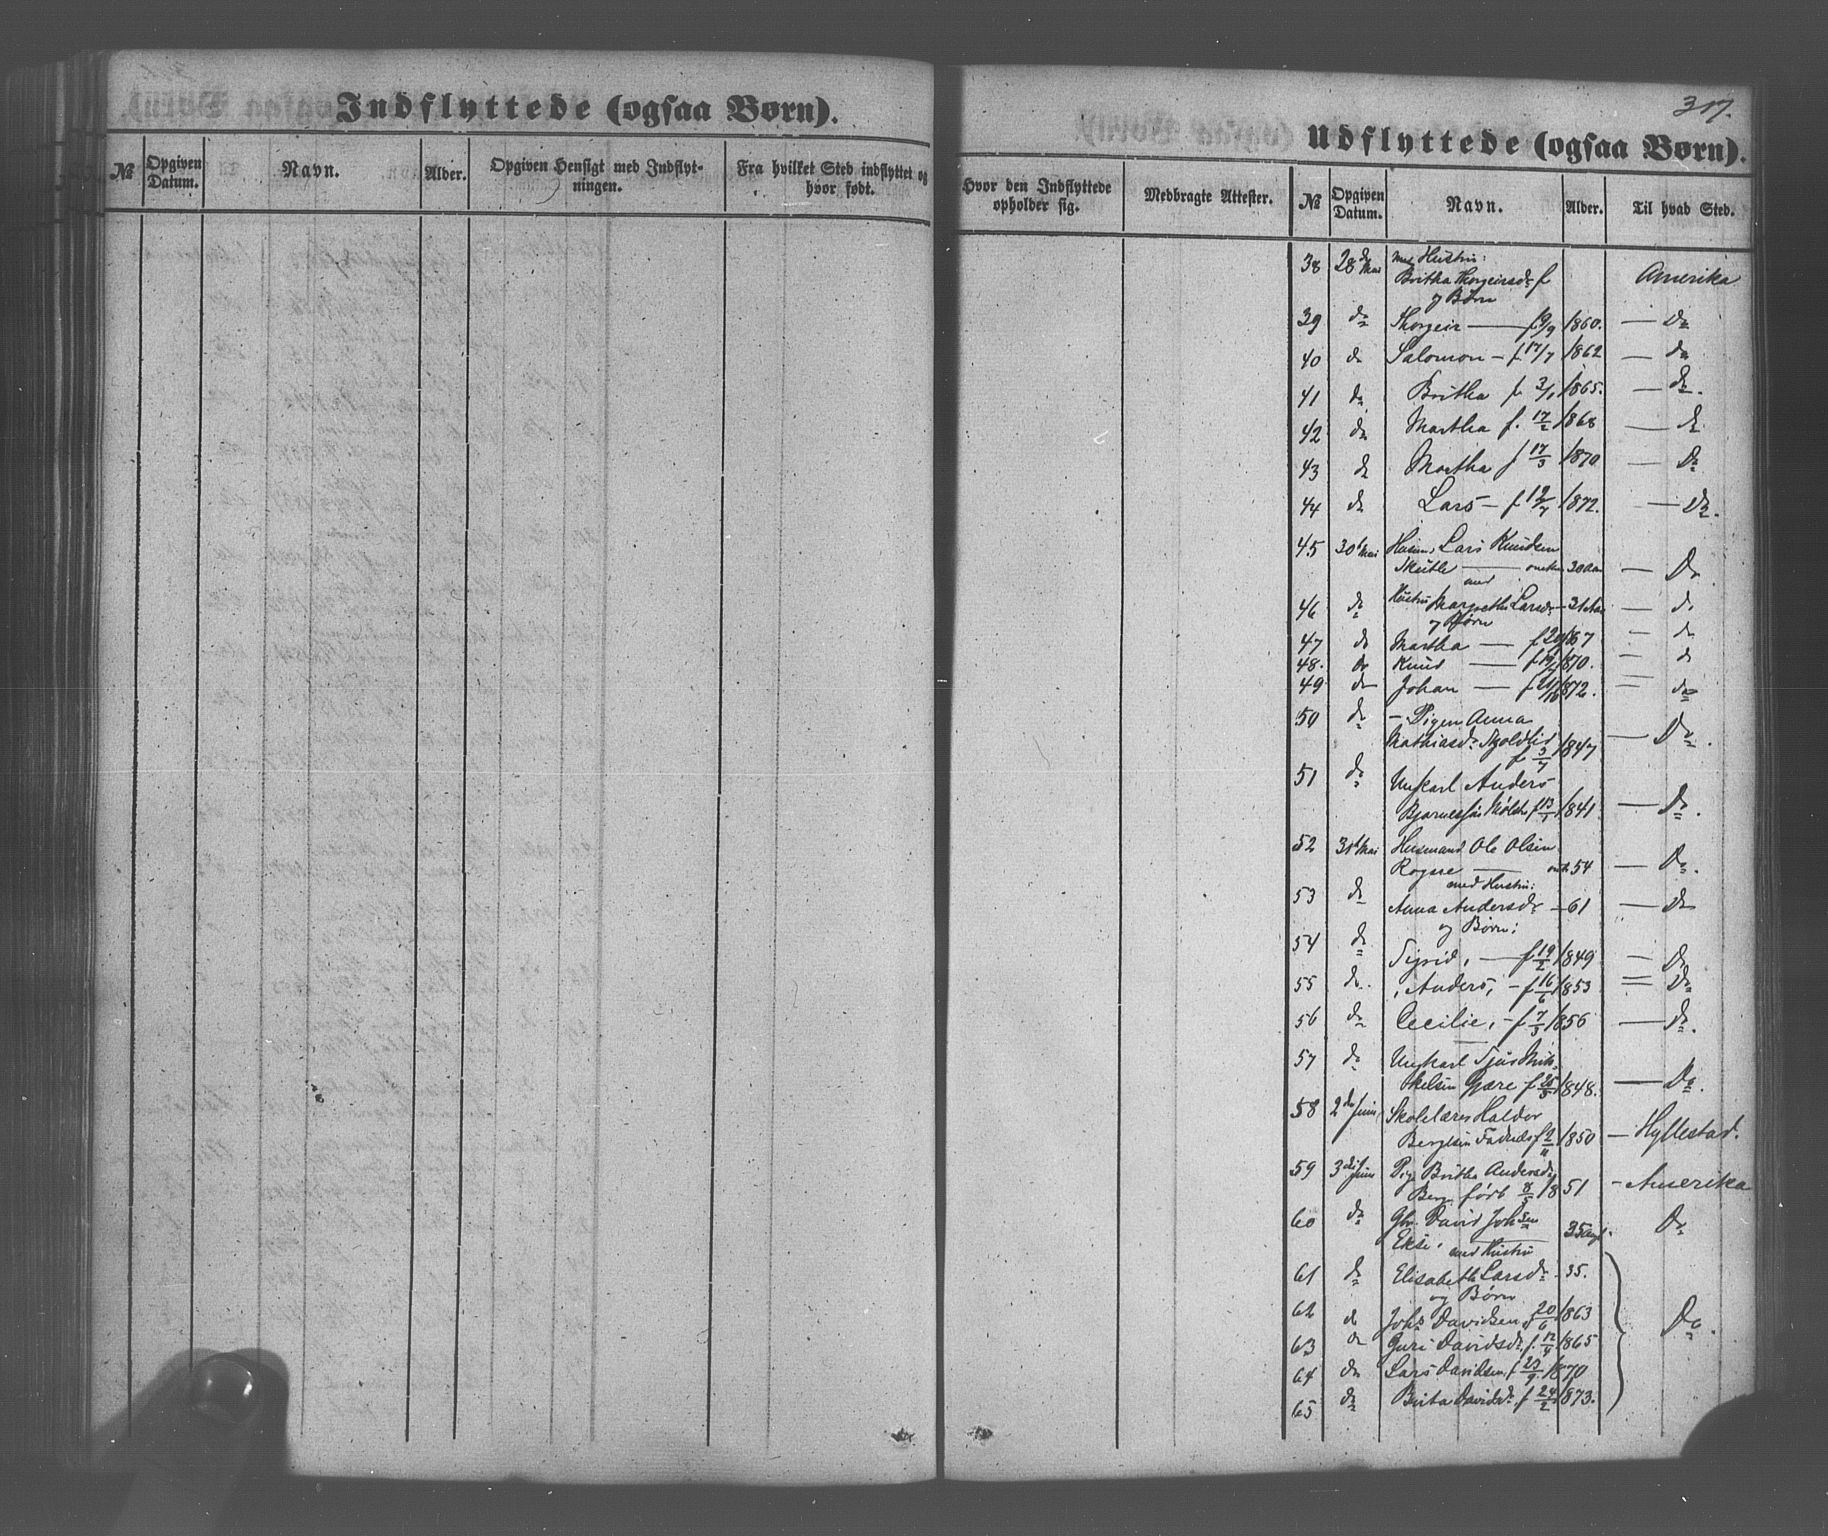 Indflyttede (ogsaa Børn).
№ Opgiven Datum. Navn. Alder. Opgiven Hensigt med Indflytningen. Fra hvilket Sted indflyttet og hvor født.
317.
Udflyttede (ogsaa Børn).
Hvor den Indflyttede opholder sig. Medbragte Attester. № Opgiven Datum. Navn. Alder. Til hvad Sted.
38 28de Mai med Hustru:
Britha Thorgeirsdr f Amerika
og Børn
39 do Thorgeir — f 9/9 1860. — Do
40 do Salomon — f 17/7 1862 — do
41 do Britha f 3/1 1865. — do.
42 do Martha f. 17/2 1868 — do
43 do Martha f 17/3 1870 — Do
44 do Lars — f 12/7 1872. — Do.
45 30te Mai Husm. Lars Knudsen
Skutle — omtr 30 Aar — Do
med
46 do Hustru Margrethe Larsdr — 31 Aar — do
og Børn
47 do Martha — f 1867 — do
48. do Knud — f 1870. — do
49 do Johan — f 1872. — do
50 do — Pigen Anna
Mathiasdr Skjoldlid — Do.
f 3/7 1847
51 do Ungkarl Anders
f 13/1 1841 — Do.
52 31te Mai Husmand Ole Olsen
Rogne — omtr 54 — Do.
med Hustru:
53 do Anna Andersdr — 61 — Do
og Børn:
54 do Sigrid, — f 19/2 1849 — Do
55 do. Anders, — f 16/6 1853 — Do
56 do Cecilie, — f 7/3 1856 — Do.
57 do Ungkarl Sjur Mik-
kelsen Gjære f 25/5 1848. — Do.
58 2den Juni Skolelærer Haldor
Bergesen f 2/11 1850 — Hyllestad.
59 3die Juni Pige Britha Andersdr
Berg født 8/5 1851 — Amerika
60 do Gbr. David Johsen
Ekse, 35 Aar Do
med Hustru
61 do Elisabeth Larsdr — 35.
og Børn
62 do Johs Davidsen, f 20/6 1863 Do.
63 do Guri Davidsdr f. 12/4 1865
64 do Lars Davidsen, f 23/9 1870
65 do Brita Davidsdr. f 24/2 1873.